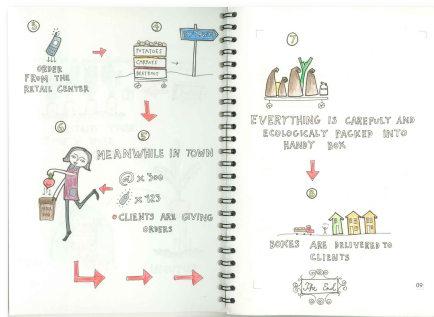 3
ORDER
FROM THE
RETAIL CENTER
4
POTATOES
CARROTS
BEETROOT
5
MEANWHILE IN TOWN
@ x 300
x 123
CLIENTS ARE GIVING
ORDERS
6
7
EVERYTHING IS CAREFULY AND
ECOLOGICALY PACKED INTO
HANDY BOX
8
BOXES ARE DELIVERED TO
CLIENTS
The End
09